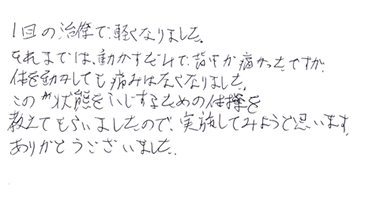 1回の治療で軽くなりました。
それまでは、動かすだけで、背中が痛かったですが、
体を動かしても痛みはなくなりました。
この状態をいじするための体操を
教えてもらいましたので、実施してみようと思います。
ありがとうございました。